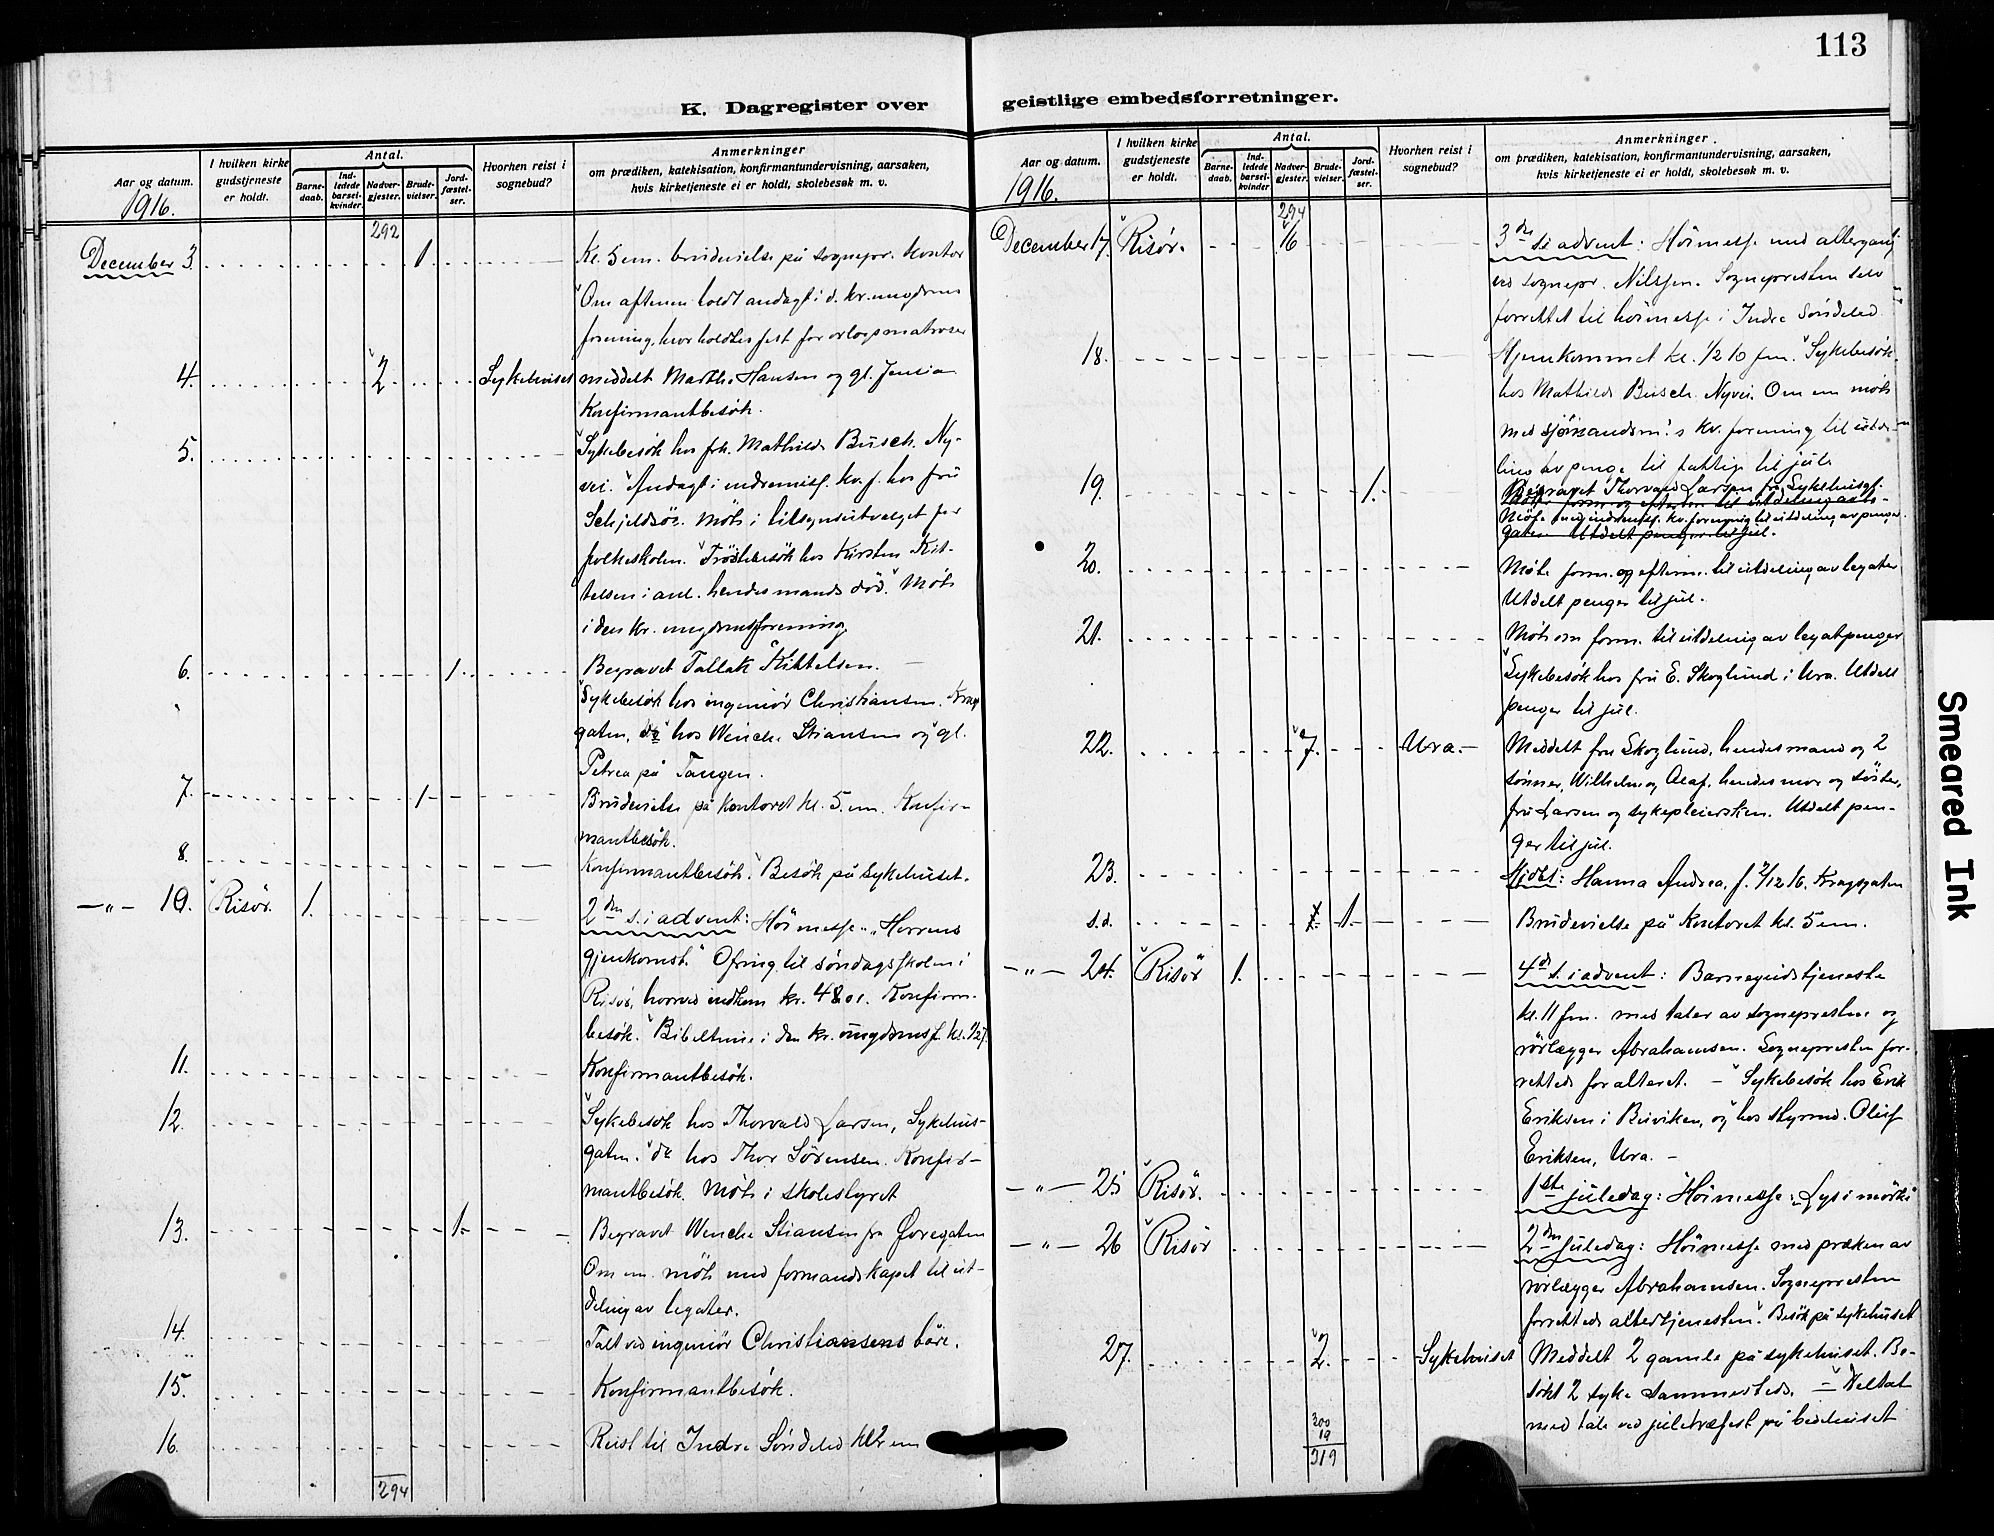 113
K. Dagregister over geistlige embedsforretninger.
Aar og datum.
1916.
I hvilken kirke gudstjeneste er holdt.
Antal.
Barnedaab.
Indledede barselkvinder.
Nadvergjester.
Brudevielser.
Jordfæstelser.
Hvorhen reist i sognebud?
Anmerkninger
om prædiken, katekisation, konfirmantundervisning, aarsaken,
hvis kirketjeneste ei er holdt, skolebesøk m. v.
292
December 3. 1 Kl. 5 em. brudevielse på sognepr. kontor
Om aftenen holdt andagt i d. kr. ungdoms
forening, hvor holdtes fest for orlogsmatroser
4. 2 Sykehuset meddelt Marthe Hansen og gl. Jensine
Konfirmantbesök.
5. Sykebesök hos frk. Mathilde Busch. Ny-
vei. Andagt i indremisj. kv. f. hos fru
Schjeldsöe. Möte i tilsynsutvalget for
folkeskolen. Tröstebesök hos Kirsten Kit-
telsen i anl. hendes mands död. Möte
i den kr. ungdomsforening
6. 1. Begravet Tallak Kittelsen.
Sykebesök hos ingeniör Christiansen. Krags
gaten, do hos Wenche Stiansen og gl.
Petrea på Tangen.
7. 1 Brudevielse på kontoret kl. 5 em. Konfir-
mantbesök.
8. Konfirmantbesök. Besök på sykehuset.
-"- 10. Risör. 1. 2den s. i advent: Höimesse "Herrens
gjenkomst." Ofring til söndagsskolen i
Risör, hvorved indkom kr. 48.01. Konfirm.
besök. Bibeltime i den kr. ungdomsf. kl. 1/2 7.
11. Konfirmantbesök.
12. Sykebesök hos Thorvald Larsen, Sykehus-
gaten. do hos Thor Sörensen. Konfir-
mantbesök. Möte i skolestyret
13. 1. Begravet Wenche Stiansen fra Øvregaten
Om em. möte med formandskapet til ut-
deling av legater.
14. Talt ved ingeniör Christiansens båre.
15. Konfirmantbesök.
16. Reist til Indre Söndeled kl 2 em
294
Aar og datum.
1916.
I hvilken kirke gudstjeneste er holdt.
Antal.
Barnedaab.
Indledede barselkvinder.
Nadvergjester.
Brudevielser.
Jordfæstelser.
Hvorhen reist i sognebud?
Anmerkninger.
om prædiken, katekisation, konfirmantundervisning, aarsaken,
hvis kirketjeneste ei er holdt, skolebesøk m. v.
294
December 17. Risör. 16 3die s. i advent: Höimesse med altergang
ved sognepr. Nilssen. Sognepresten selv
forrettet til höimesse i Indre Söndeled
18. Hjemkommet kl. 1/2 10 fm. Sykebesök
hos Mathilde Busch. Nyvei. Om em möte
med sjömandsm.'s kv. forening til utde-
ling av penge til fattige til jul
19. 1. Begravet Thorvald Larsen fra Sykehusgt.
Möte med indremisj. kv. forening til utdeling av penger.
20. Möte form. og efterm. til utdeling av legater
Utdelt penger til jul.
21. Möte om form. til utdeling av legatpenger
Sykebesök hos fru E. Skoglund i Ura. Utdelt
penger til jul.
22. 7. Ura. Meddelt fru Skoglund, hendes mand og 2
sönner, Wilhelm og Olaf, hendes mor og söster,
fru Larsen og sykepleiersken. Utdelt pen-
ger til jul.
23. Hjdbt: Hanna Andrea, f. 2/12 16. Kragsgaten
s.d. 1. Brudevielse på kontoret kl. 5 em.
-"- 24. Risör 1. 4de s. i advent: Barnegudstjeneste
kl. 11 fm. med taler av sognepresten og
rörlægger Abrahamsen. Sognepresten for-
rettede for alteret. - Sykebesök hos Erik
Eriksen i Buviken, og hos styrmd. Oluf
Eriksen, Ura. -
-"- 25 Risör. 1ste juledag: Höimesse: "Lys i mörke"
-"- 26 Risör 2den juledag: Höimesse med præken av
rörlægger Abrahamsen. Sognepresten
forrettede altertjenesten. Besök på sykehuset
27. 2. Sykehuset Meddelt 2 gamle på sykehuset. Be-
sökt 2 syke sammesteds. - Deltat
med tale ved juletræfest på bedehuset
300
19
319
Smeared Ink